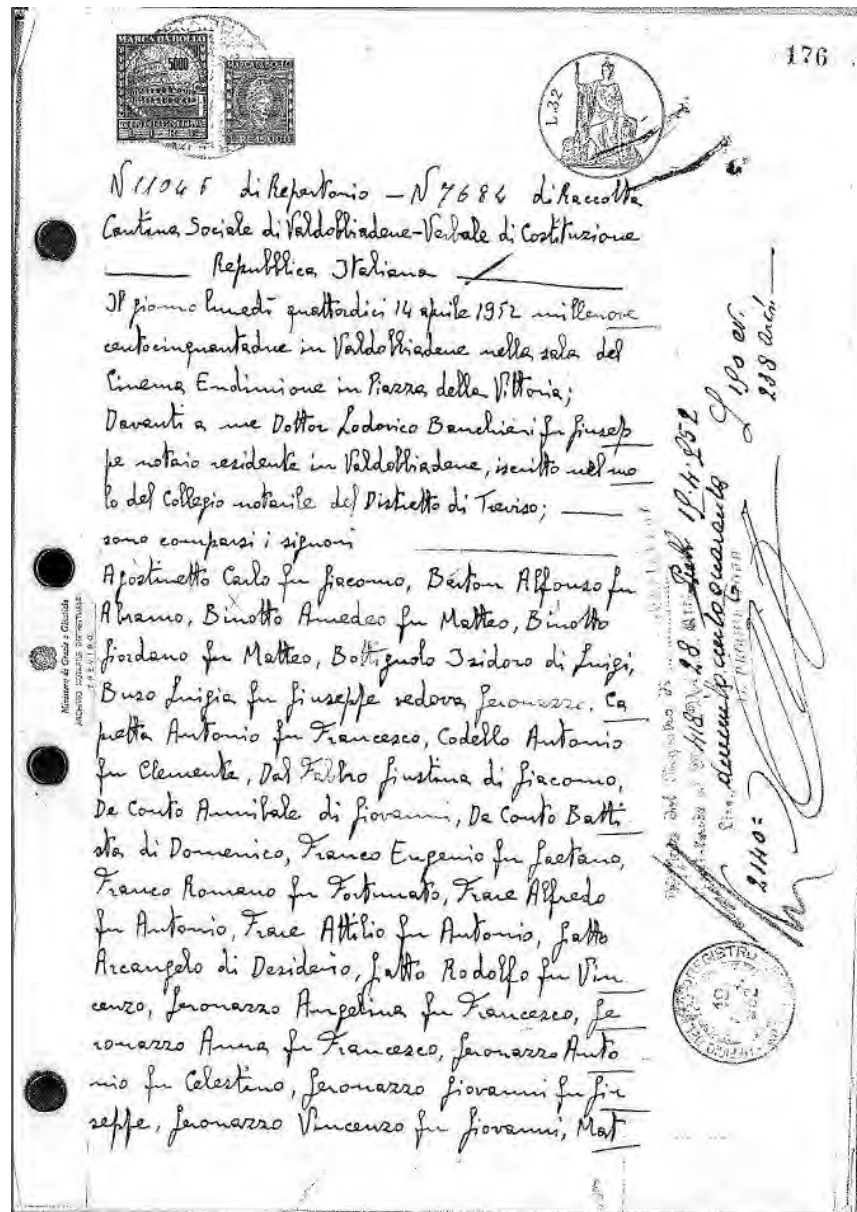 176
MARCA DA BOLLO
5000
LIRE
L.32
N 11045 di Repertorio - N 7684 di Raccolta
Cantina Sociale di Valdobbiadene - Verbale di Costituzione
Repubblica Italiana
Il giorno lunedì quattordici 14 aprile 1952 millenove
centocinquantadue in Valdobbiadene nella sala del
Cinema Endimione in Piazza della Vittoria;
Davanti a me Dottor Lodovico Banchieri fu Giusep
pe notaio residente in Valdobbiadene, iscritto nel ruo
lo del Collegio notarile del Distretto di Treviso;
sono comparsi i signori
Agostinetto Carlo fu Giacomo, Berton Alfonso fu
Abramo, Binotto Amedeo fu Matteo, Binotto
Giordano fu Matteo, Bottignolo Isidoro di Luigi,
Buso Luigia fu Giuseppe vedova Geronazzo, Ca
petta Antonio fu Francesco, Codello Antonio
fu Clemente, Dal Fabbro Giustina di Giacomo,
De Conto Annibale di Giovanni, De Conto Batti
sta di Domenico, Franco Eugenio fu Gaetano,
Franco Romano fu Fortunato, Frare Alfredo
fu Antonio, Frare Attilio fu Antonio, Gatto
Arcangelo di Desiderio, Gatto Rodolfo fu Vin
cenzo, Geronazzo Angelina fu Francesco, Ge
ronazzo Anna fu Francesco, Geronazzo Anto
nio fu Celestino, Geronazzo Giovanni fu Giu
seppe, Geronazzo Vincenzo fu Giovanni, Mat
Ministero di Grazia e Giustizia
ARCHIVIO NOTARILE DISTRETTUALE
TREVISO
19.4.952
duemilacentoquaranta
2140=
190 ev.
238
REGISTRO